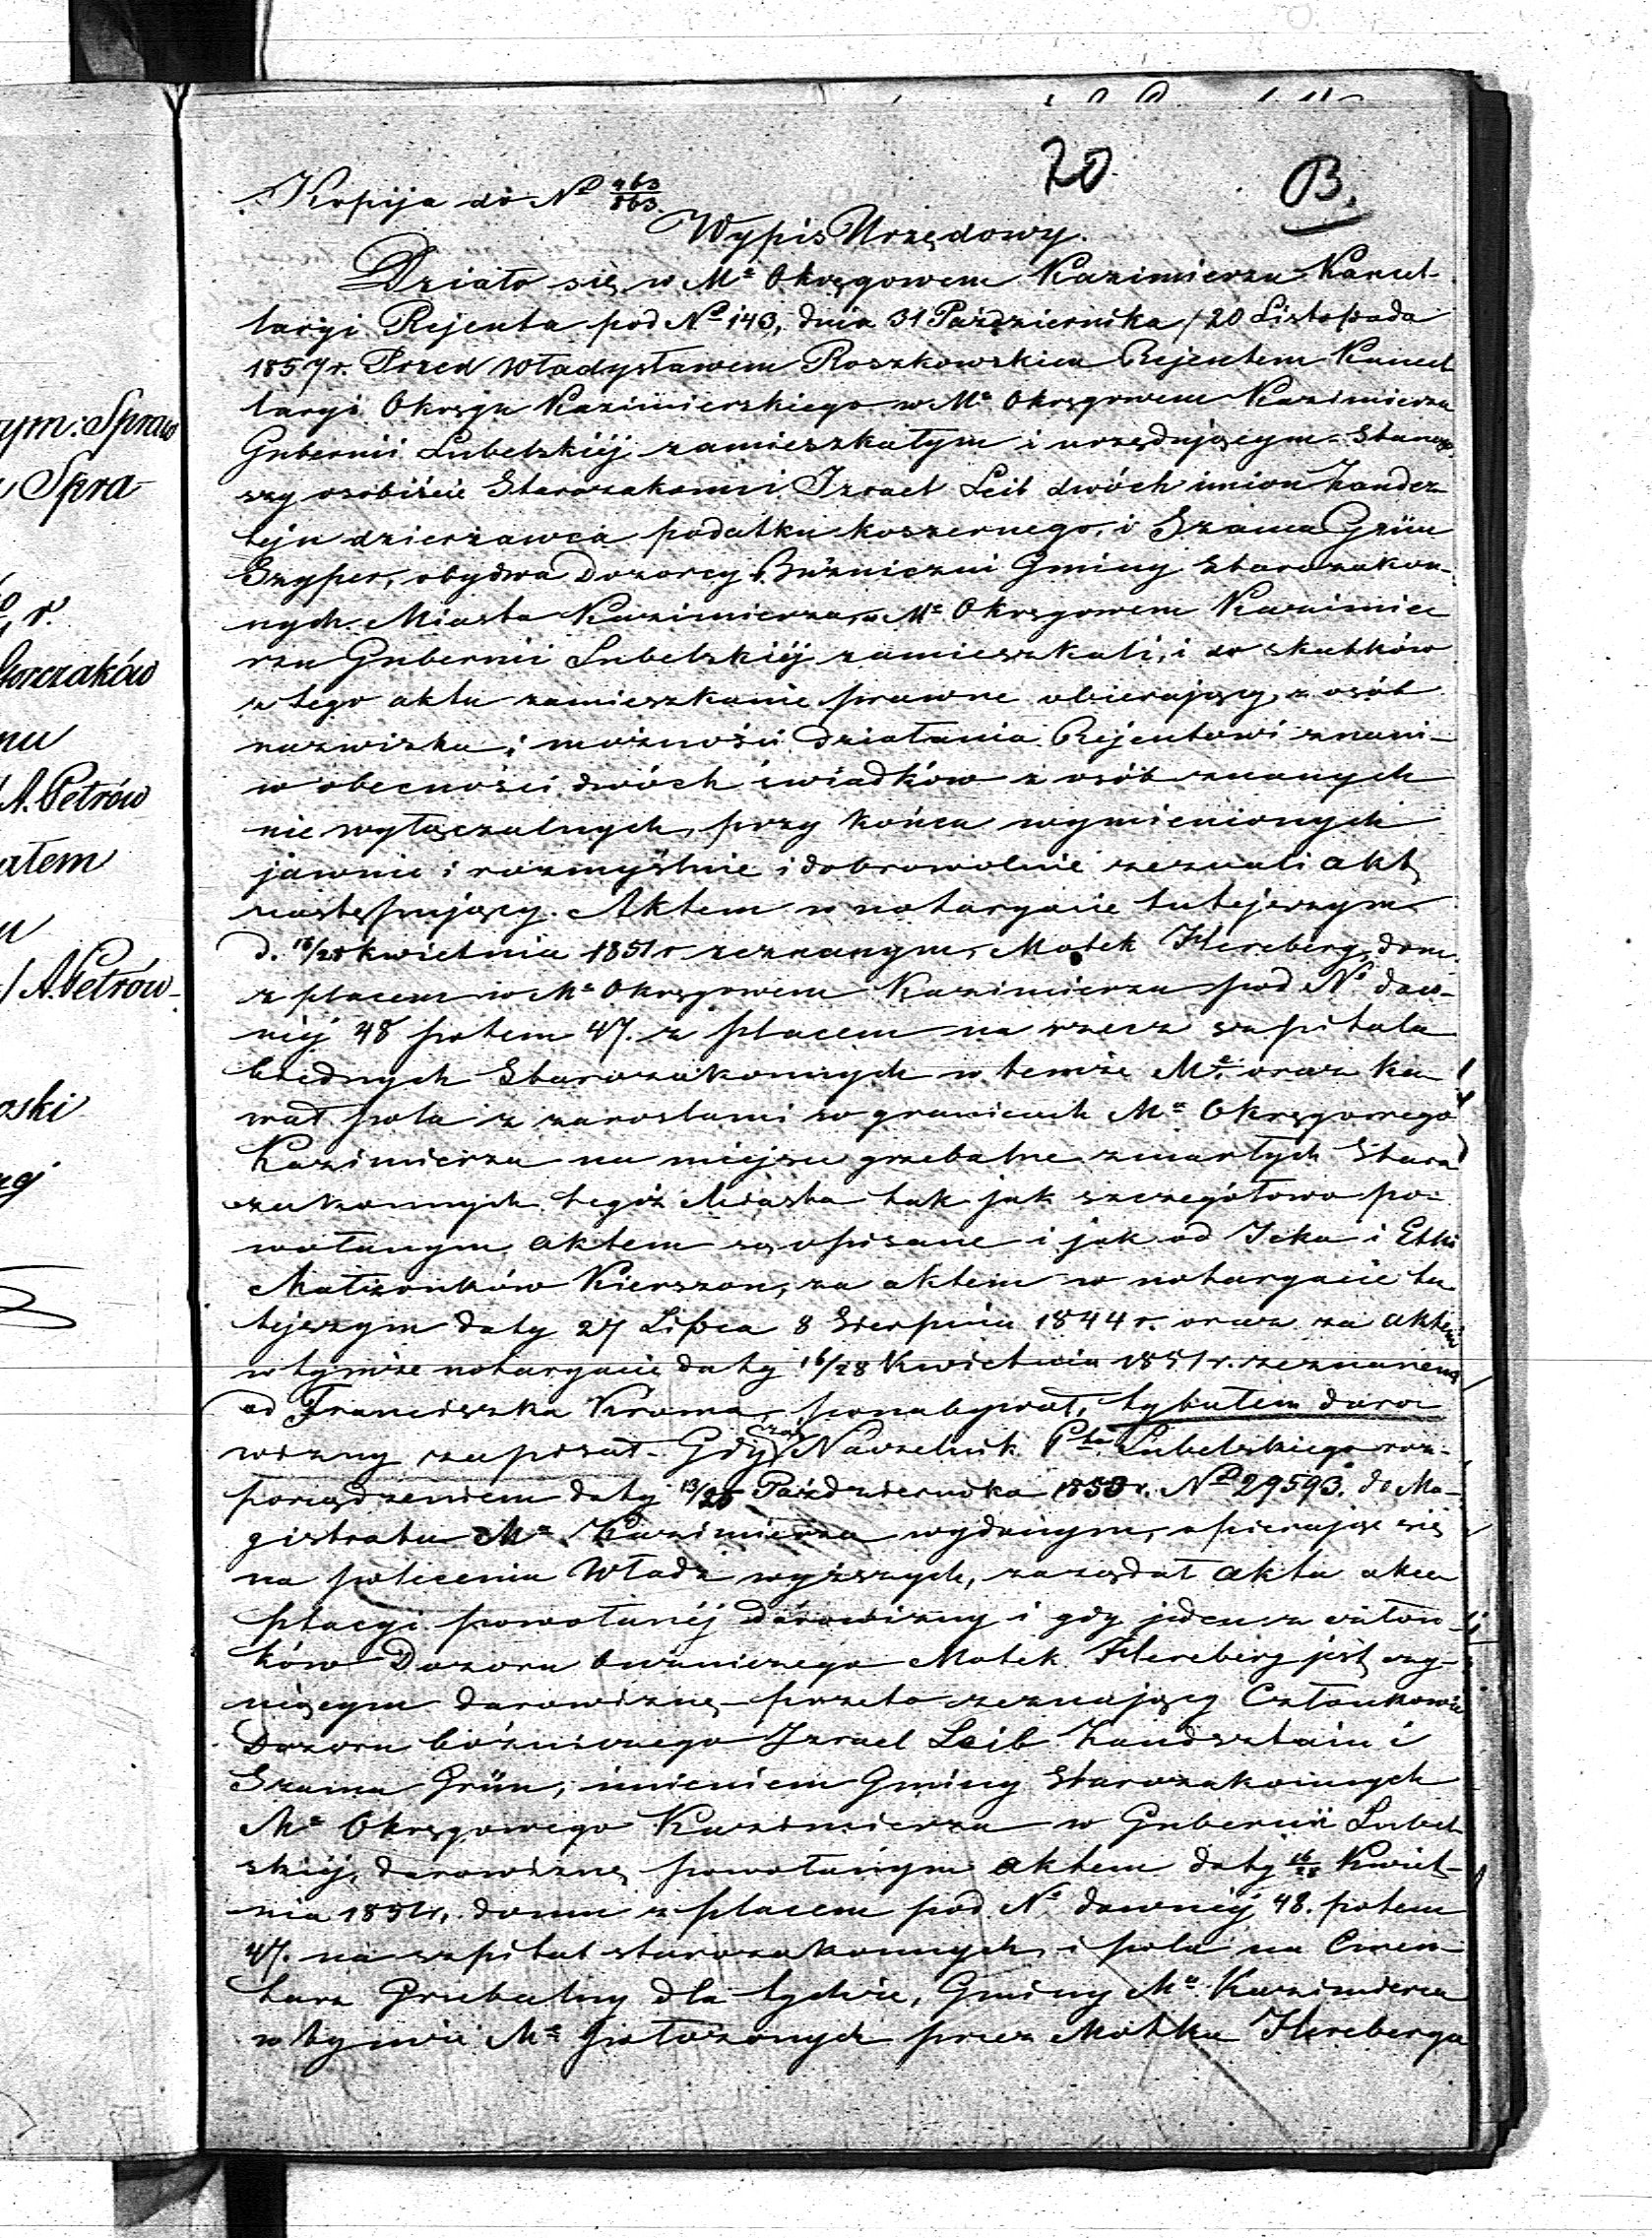 20
B.
Kopija do No 963/863
Wypis Urzędowy.
Działo się w Me Okręgowem Kazimierzu Kancel-
laryi Rejenta pod No 143, dnia 31 Października / 20 Listopada
1857 r. Przed Władysławem Roszkowskim Rejentem Kancel
laryi Okręgu Kazimierskiego w Me Okręgowem Kazimierzu
Gubernii Lubelskiéj zamieszkałym i urzędującym. Stanąw
szy osobiście Starozakonni Izrael Leib dwóch imion Zandsz-
tejn dzierżawca podatku koszernego, i Szama Grün
Szyper, obydwa Dozorcy Bóżniczni Gminy Starozakon-
nych Miasta Kazimierza, w Me Okręgowem Kazimie
rzu Gubernii Lubelskiéj zamieszkali, i do skutków
z tego aktu zamieszkanie prawne obierający, z osób
nazwiska i możności działania Rejentowi znani-
w obecności dwóch świadków z osób znanych
nie wyłączalnych, przy końcu wymienionych
jawnie i rozmyślnie i dobrowolnie zeznali akt,
następujący. Aktem w notaryacie tutejszym
d. 16/28 kwietnia 1851 r zeznanym, Motek Herzberg, dom
z placem w Me Okręgowem Kazimierzu pod No daw-
niéj 48 potem 47. z placem na rzecz szpitala
biednych Starozakonnych w temże Me. oraz ka-
wał pola z zaroslami w granicach Ma Okręgowego
Kazimierza na miejsce grzebalne zmarłych Staro
zakonnych tegoż Miasta tak jak szczegółowo po-
wołanym aktem są opisane i jak od Icka i Etki
Małżonków Kierszon, za aktem w notaryacie tu
tejszym daty 27 Lipca 8 Sierpnia 1844 r. oraz za aktem
w tymże notaryacie daty 16/28 Kwietnia 1851 r. zeznanem
od Franciszka Kroma, ponabywał, tytułem daro
wizny zapisał. Gdy zaś Naczelnik Ptu Lubelskiego roz-
porządzeniem daty 13/25 Października 1850 r. No 29593. do Ma-
gistratu Ma Kazimierza wydanym, opierając się
na poleceniu Władz wyższych, zażądał aktu akce
ptacyi powołanéj darowizny i gdy jeden z człon-
ków Dozoru Bożniczego Motek Herzberg jest czy-
niącym darowiznę - przeto zeznający Członkowie
Dozoru bóżniczego Izrael Leib Zandsztain i
Szama Grün, imieniem Gminy Starozakonnych
Ma Okręgowego Kazimierza w Gubernii Lubel
skiéj, darowiznę powołanym aktem daty 16/28 Kwiet-
nia 1851 r. domu z placem pod No dawniéj 48. potem
47. na szpital starozakonnych i pola na Cmen-
tarz Grzebalny dla tychże, Gminy Ma Kazimierza
w tymże Me położonych przez Motka Herzberga
ym: Spraw
Spra-
r.
Gorczaków
nu
A. Petrów
atem
u
/ A. Petrów-
oski